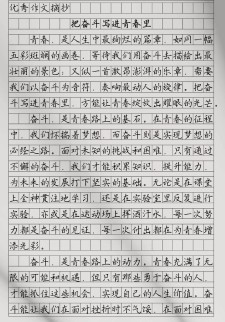 优秀作文摘抄
把奋斗写进青春里
青春，是人生中最绚烂的篇章，如同一幅
五彩斑斓的画卷，等待我们用奋斗去描绘出最
壮丽的景色；又似一首激昂澎湃的乐章，需要
我们以奋斗为音符，奏响最动人的旋律。把奋
斗写进青春里，方能让青春绽放出耀眼的光芒。
奋斗，是青春路上的基石。在青春的征程
中，我们怀揣着梦想，而奋斗则是实现梦想的
必经之路。面对未知的挑战和困难，只有通过
不懈的奋斗，我们才能积累知识、提升能力，
为未来的发展打下坚实的基础。无论是在课堂
上全神贯注地学习，还是在实验室里反复进行
实验，亦或是在运动场上挥洒汗水，每一次努
力都是奋斗的见证，每一次付出都在为青春增
添光彩。
奋斗，是青春路上的动力。青春充满了无
限的可能和机遇，但只有那些勇于奋斗的人，
才能抓住这些机会，实现自己的人生价值。奋
斗能让我们在面对挫折时不气馁，在面对困难